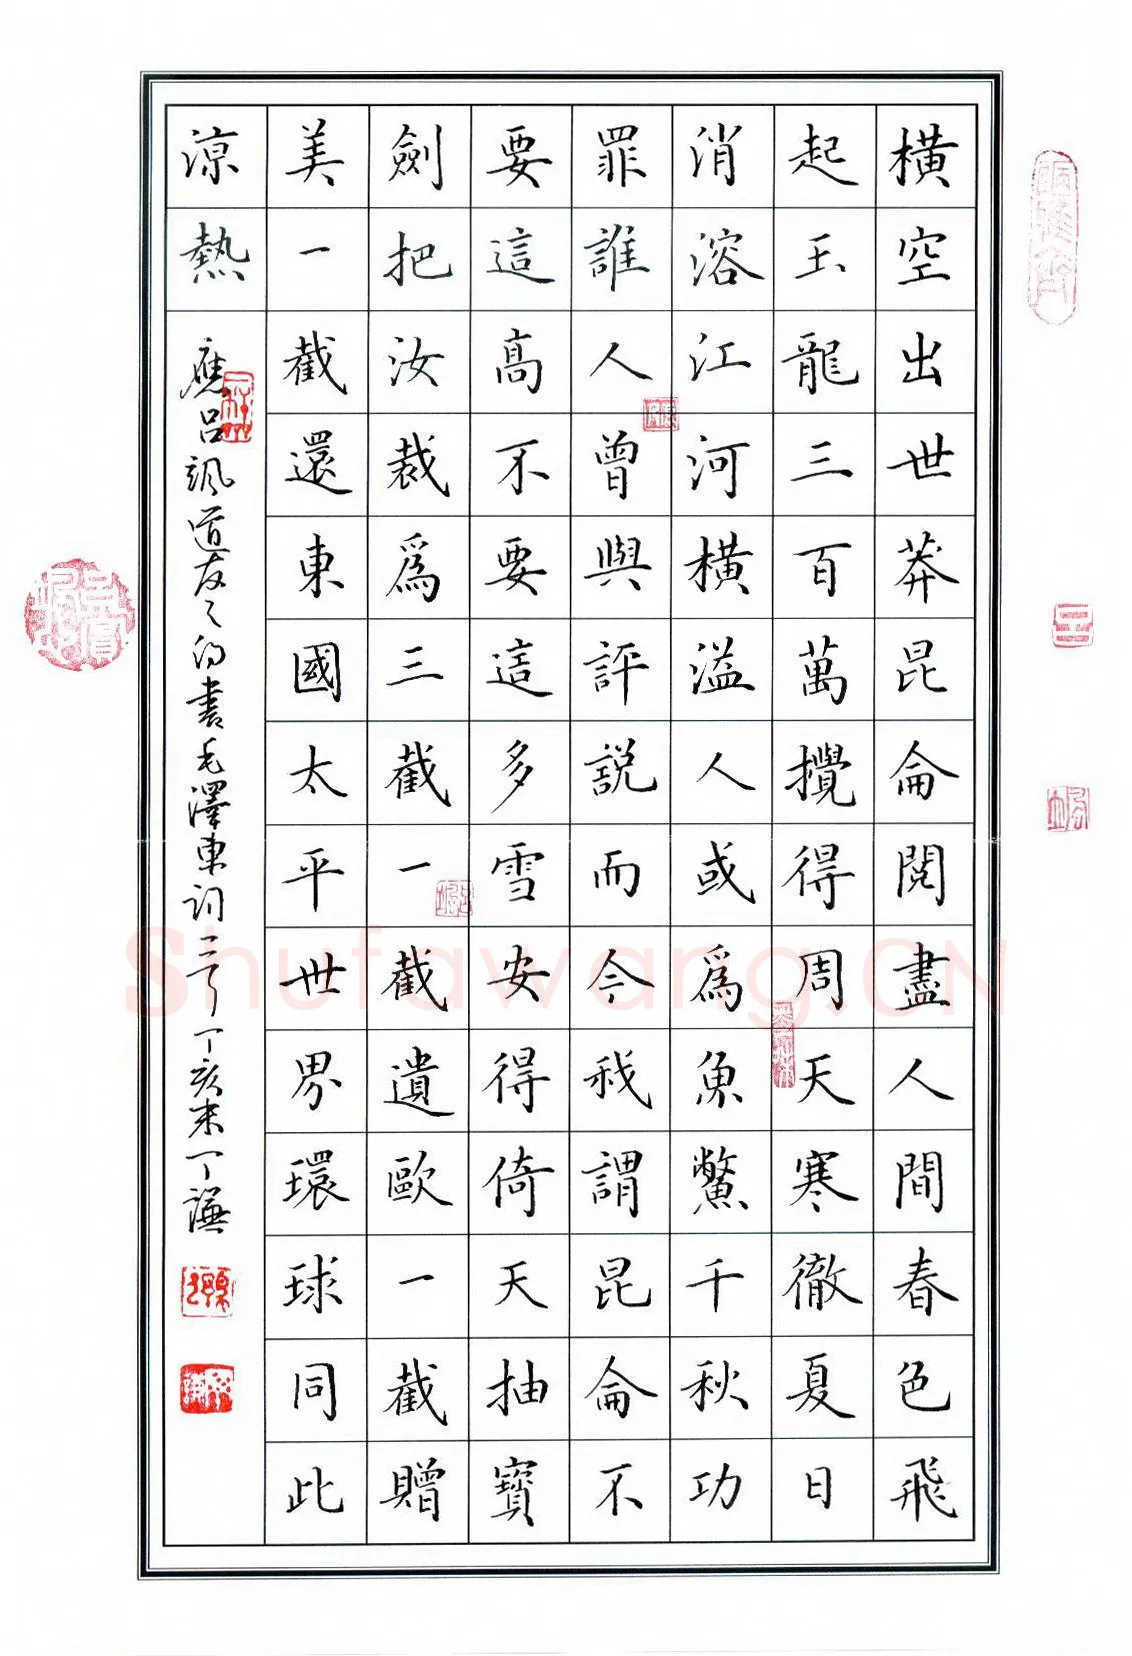 橫空出世莽昆侖閱盡人間春色飛
起玉龍三百萬攪得周天寒徹夏日
消溶江河橫溢人或為魚鱉千秋功
罪誰人曾與評說而今我謂昆侖不
要這高不要這多雪安得倚天抽寶
劍把汝裁為三截一截遺歐一截贈
美一截還東國太平世界環球同此
涼熱
應呂颯道友之約書毛澤東詞丁亥末丁謙
Shufawang.CN